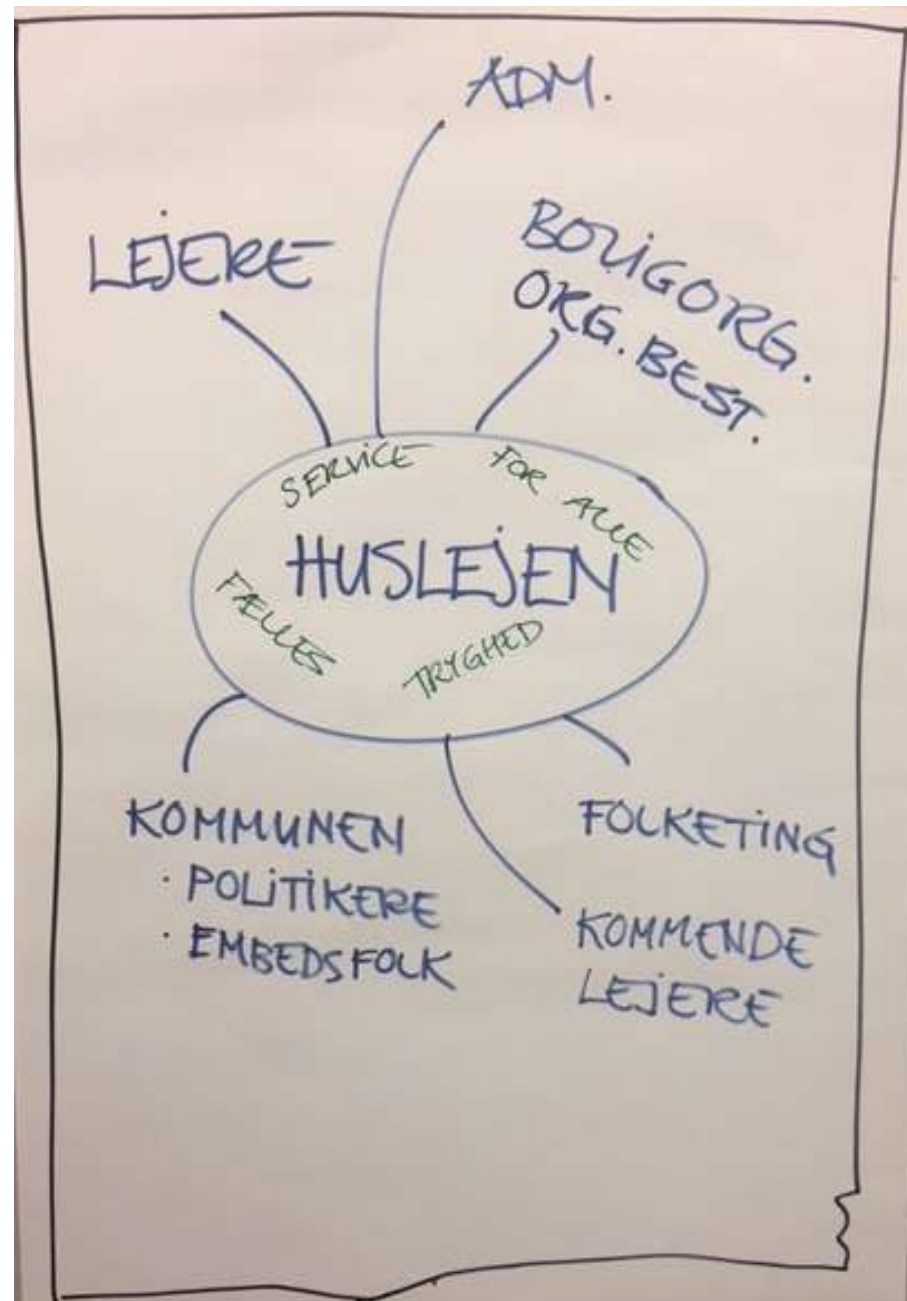 ADM.
LEJERE
BOLIGORG.
ORG. BEST.
SERVICE
FOR ALLE
HUSLEJEN
FÆLLES
TRYGHED
KOMMUNEN
· POLITIKERE
· EMBEDSFOLK
FOLKETING
KOMMENDE
LEJERE